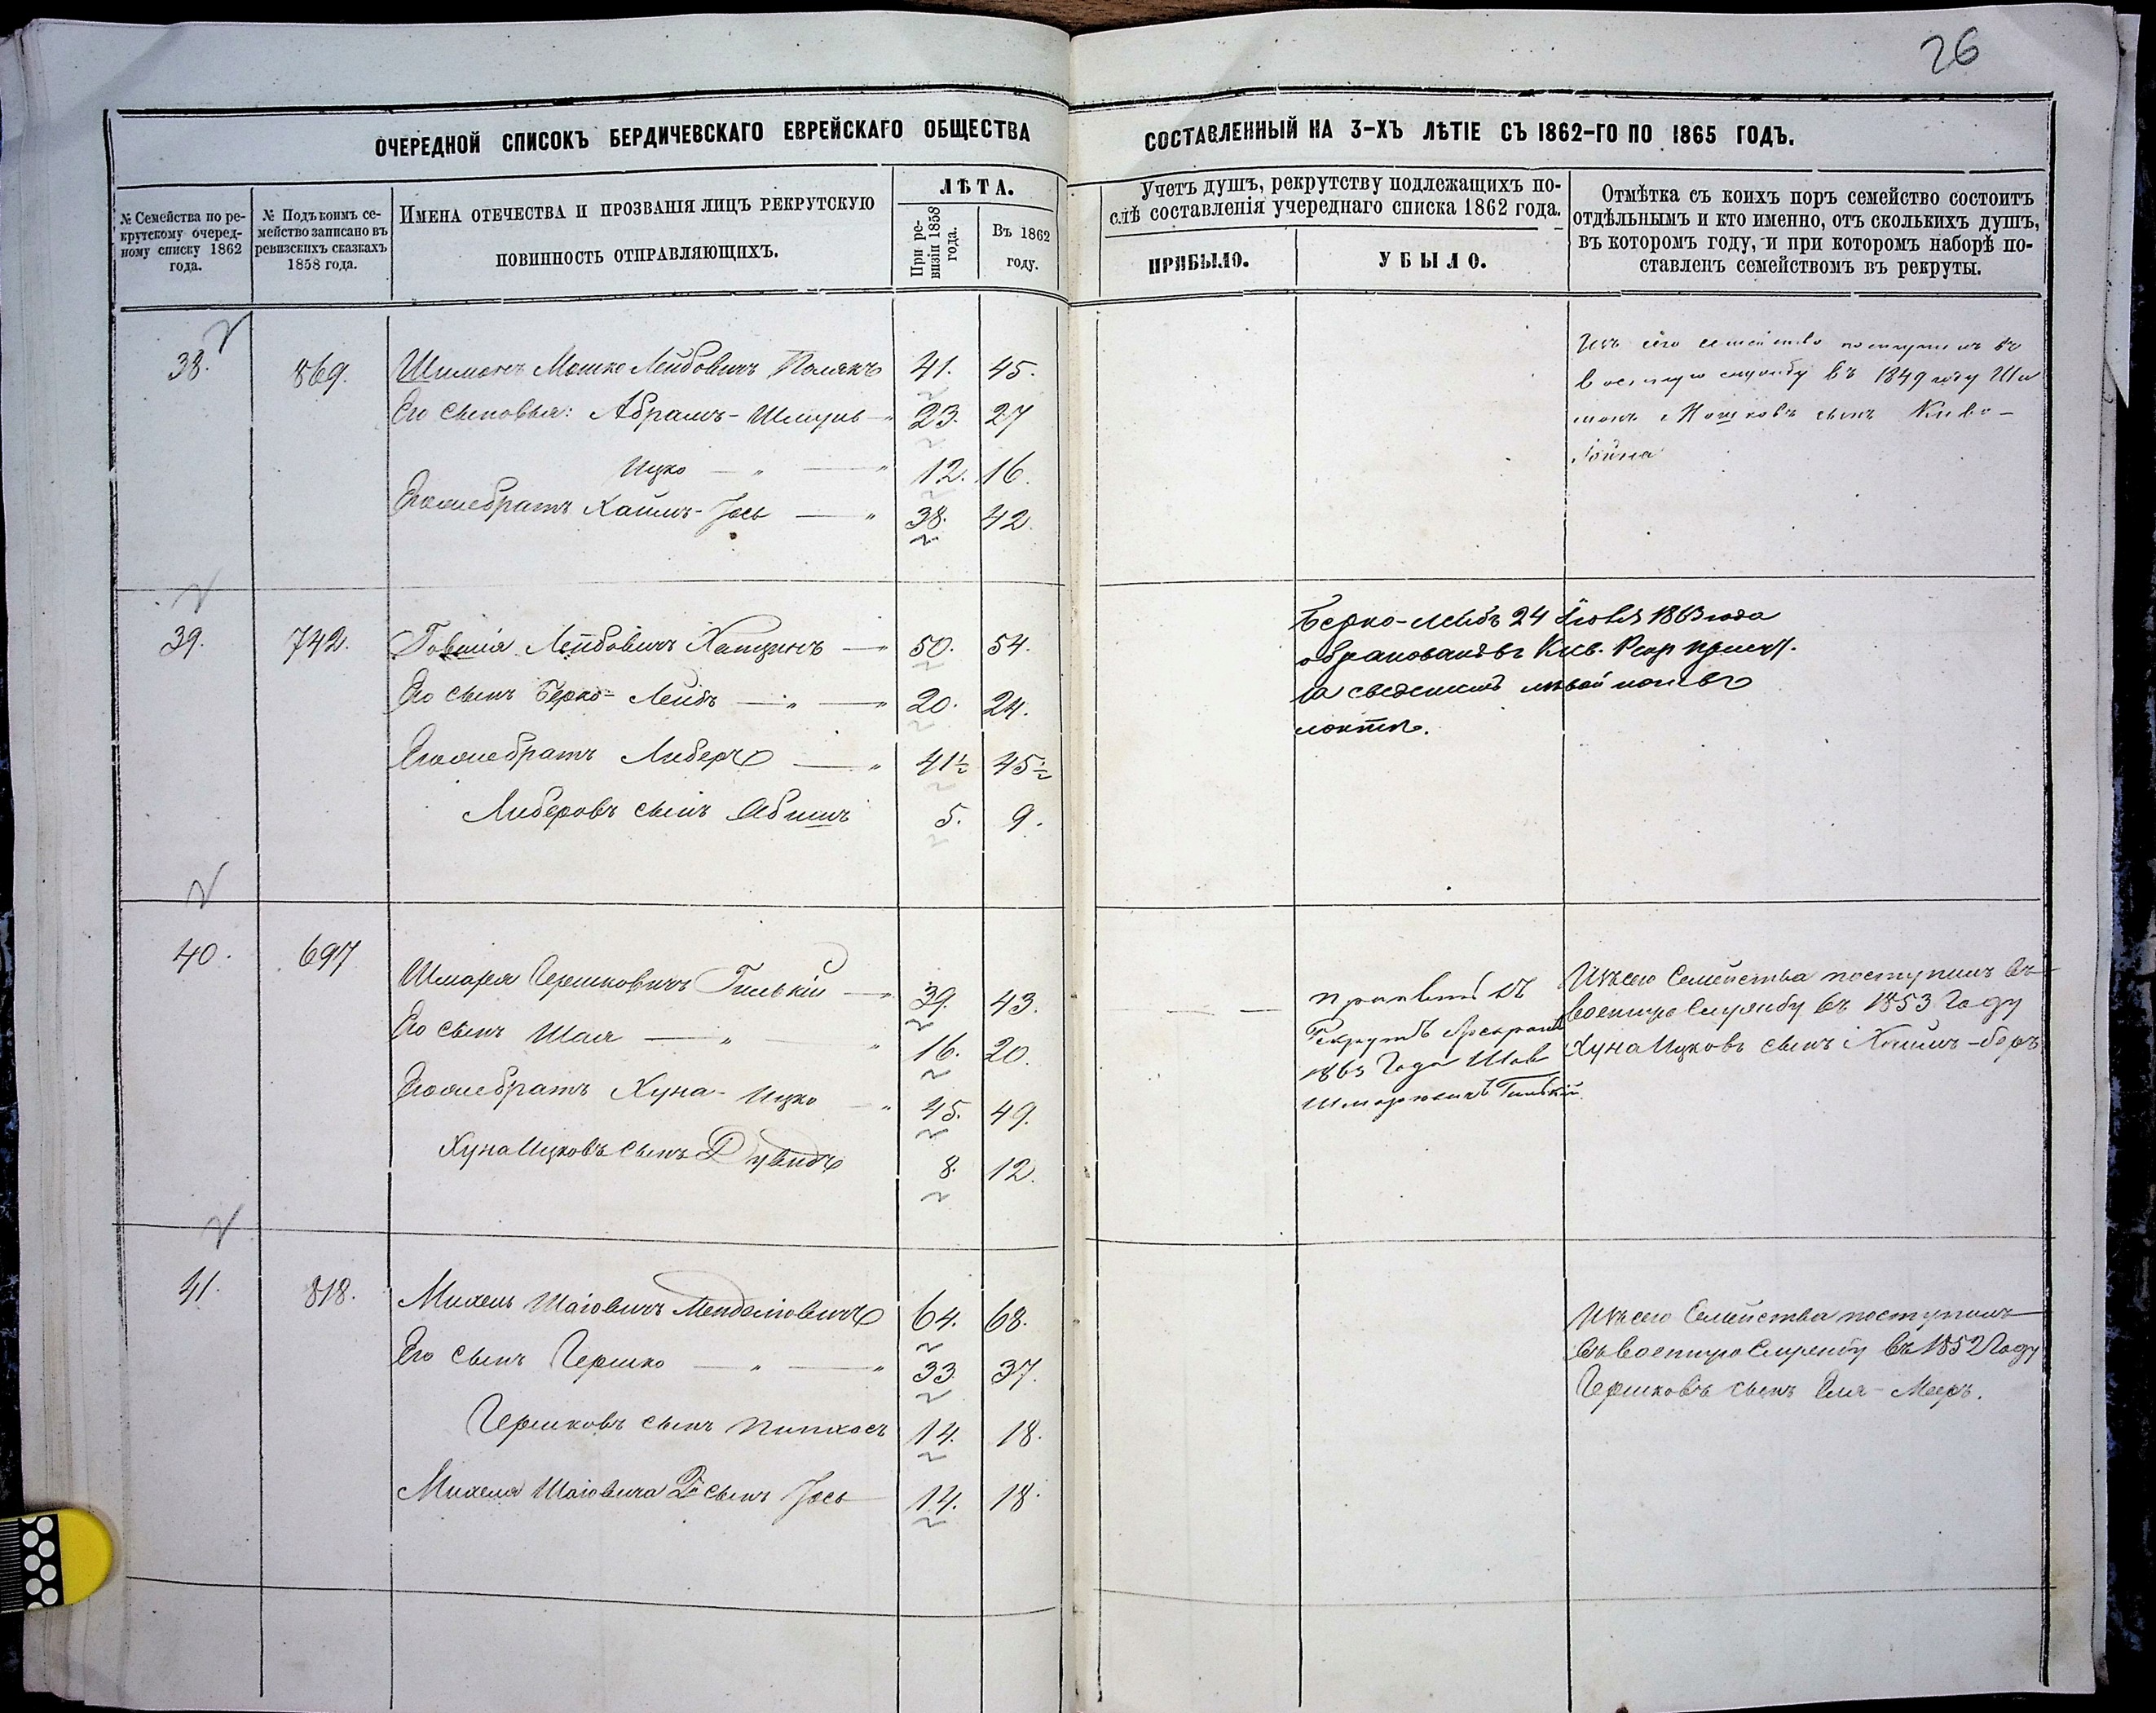 26
ОЧЕРЕДНОЙ СПИСОКЪ БЕРДИЧЕВСКАГО ЕВРЕЙСКАГО ОБЩЕСТВА
СОСТАВЛЕННЫЙ НА 3-ХЪ ЛѢТІЕ СЪ 1862-ГО ПО 1865 ГОДЪ.
№ Семейства по ре-
крутскому очеред-
ному списку 1862
года.
№ Подъ коимъ се-
мейство записано въ
ревизскихъ сказкахъ
1858 года.
ИМЕНА ОТЕЧЕСТВА И ПРОЗВАНІЯ ЛИЦЪ РЕКРУТСКУЮ
ПОВИННОСТЬ ОТПРАВЛЯЮЩИХЪ.
ЛѢТА.
При ре-
визіи 1858
года.
Въ 1862
году.
Учетъ душъ, рекрутству подлежащихъ по-
слѣ составленія учереднаго списка 1862 года.
ПРИБЫЛО.
УБЫЛО.
Отмѣтка съ коихъ поръ семейство состоитъ
отдѣльнымъ и кто именно, отъ сколькихъ душъ,
въ которомъ году, и при которомъ наборѣ по-
ставленъ семействомъ въ рекруты.
38. 869. Шимонъ Мошко Лейбовичъ Полякъ 41. 45.
Его сыновья: Абрамъ-Шмуль 23. 27
Ицко 12. 16.
Его же братъ Хаимъ-Іось 38. 42
Изъ сего семейства поступилъ въ
военную службу въ 1849 году Ши
монъ Мошковъ сынъ
39. 742. Лейбовичъ 50. 54.
Его сынъ Берко-Лейбъ 20. 24.
Его же братъ Либеръ 41½ 45½
Либеровъ сынъ Абишъ 5. 9.
Берко-Лейбъ 24 1863 года
обракованъ въ Кіев.
40. 697 Шмарія Гершковичъ 39. 43.
Его сынъ Шая 16. 20.
Его же братъ Хуна-Ицко 45. 49.
Хуна Ицковъ сынъ Дувидъ 8. 12.
1863 Года
Изъ сего Семейства поступилъ въ
военную Службу въ 1853 Году
Хуна Ицковъ сынъ Хаимъ-беръ
41. 818. Михель Шаіовичъ 64. 68.
Его сынъ Гершко 33. 37.
Гершковъ сынъ Пинхосъ 14. 18.
Михеля Шаіовича 2й сынъ Іось 14. 18.
Изъ сего Семейства поступилъ
въ военную Службу въ 1852 Году
Гершковъ сынъ Меер.